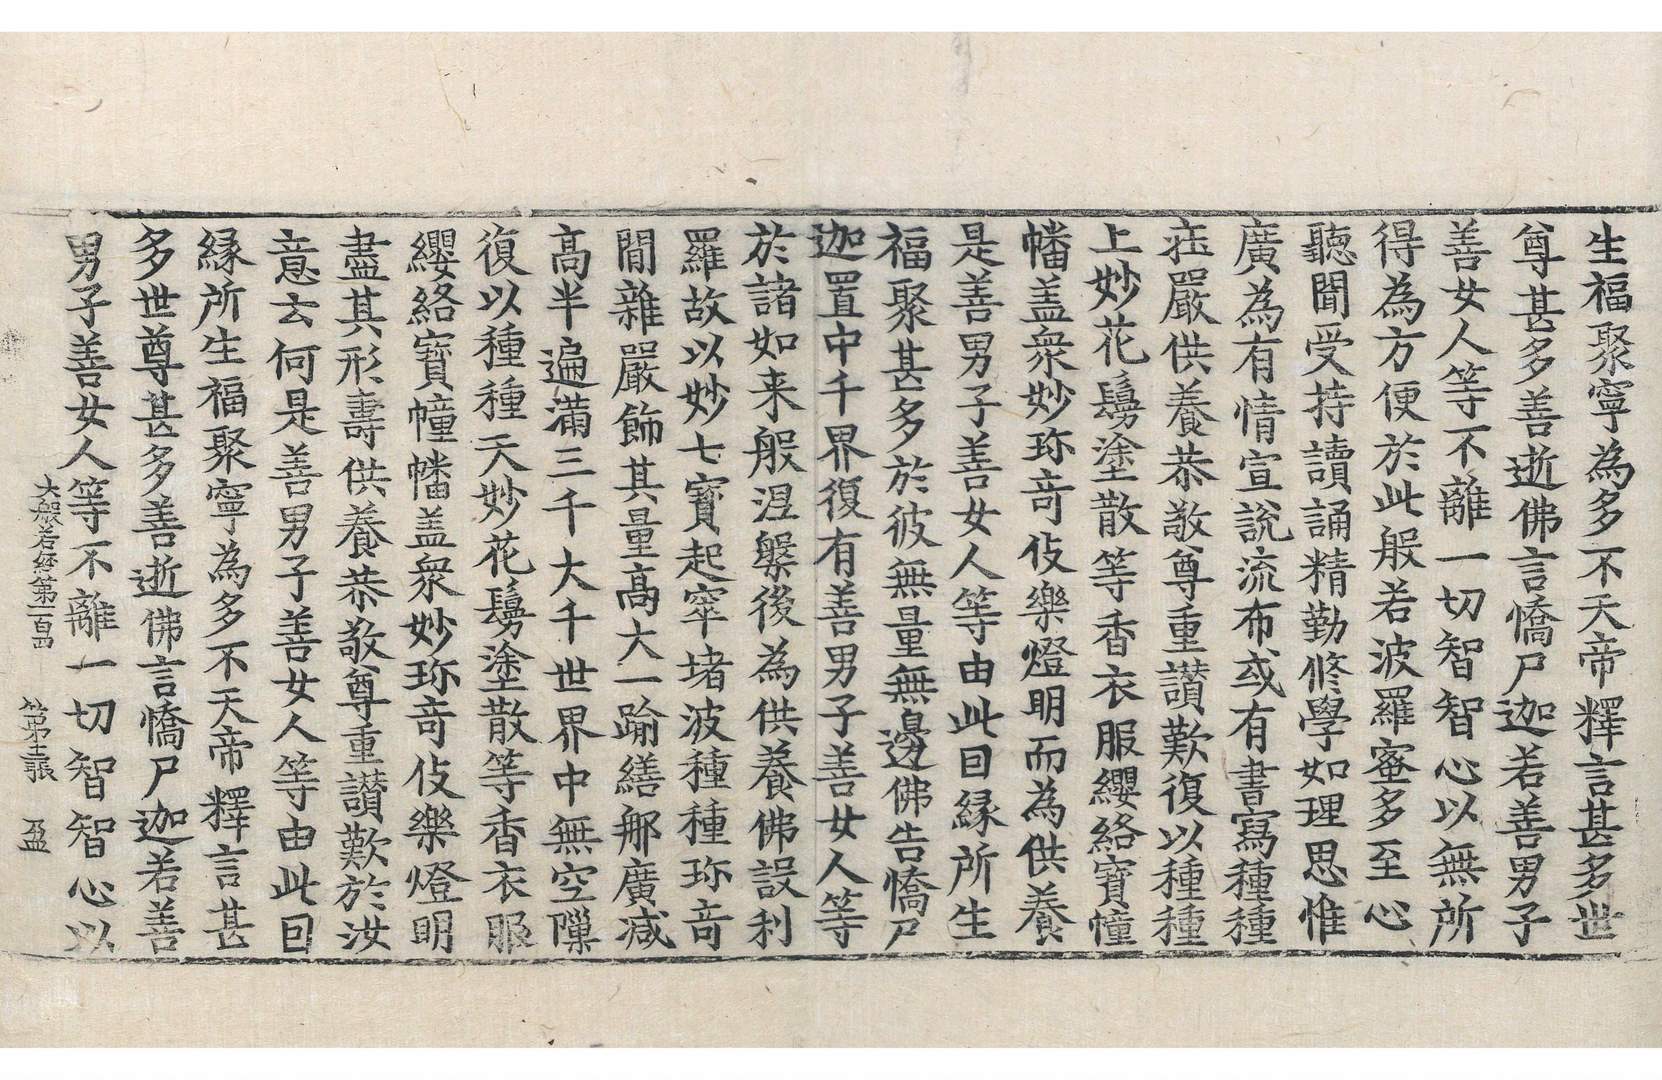 生福聚寧為多不天帝釋言甚多世
尊甚多善逝佛言憍尸迦若善男子
善女人等不離一切智智心以無所
得為方便於此般若波羅蜜多至心
聽聞受持讀誦精勤修學如理思惟
廣為有情宣說流布或有書寫種種
莊嚴供養恭敬尊重讚歎復以種種
上妙花鬘塗散等香衣服纓絡寶幢
幡盖衆妙珎奇伎樂燈明而為供養
是善男子善女人等由此因縁所生
福聚甚多於彼無量無邊佛告憍尸
迦置中千界復有善男子善女人等
於諸如来般涅槃後為供養佛設利
羅故以妙七寶起窣堵波種種珎奇
間雜嚴飾其量高大一踰繕那廣减
高半遍滿三千大千世界中無空隟
復以種種天妙花鬘塗散等香衣服
纓絡寶幢幡盖衆妙珎奇伎樂燈明
盡其形壽供養恭敬尊重讃歎於汝
意云何是善男子善女人等由此因
縁所生福聚寧為多不天帝釋言甚
多世尊甚多善逝佛言憍尸迦若善
男子善女人等不離一切智智心以
大般若經第一百四 第十三張 盈